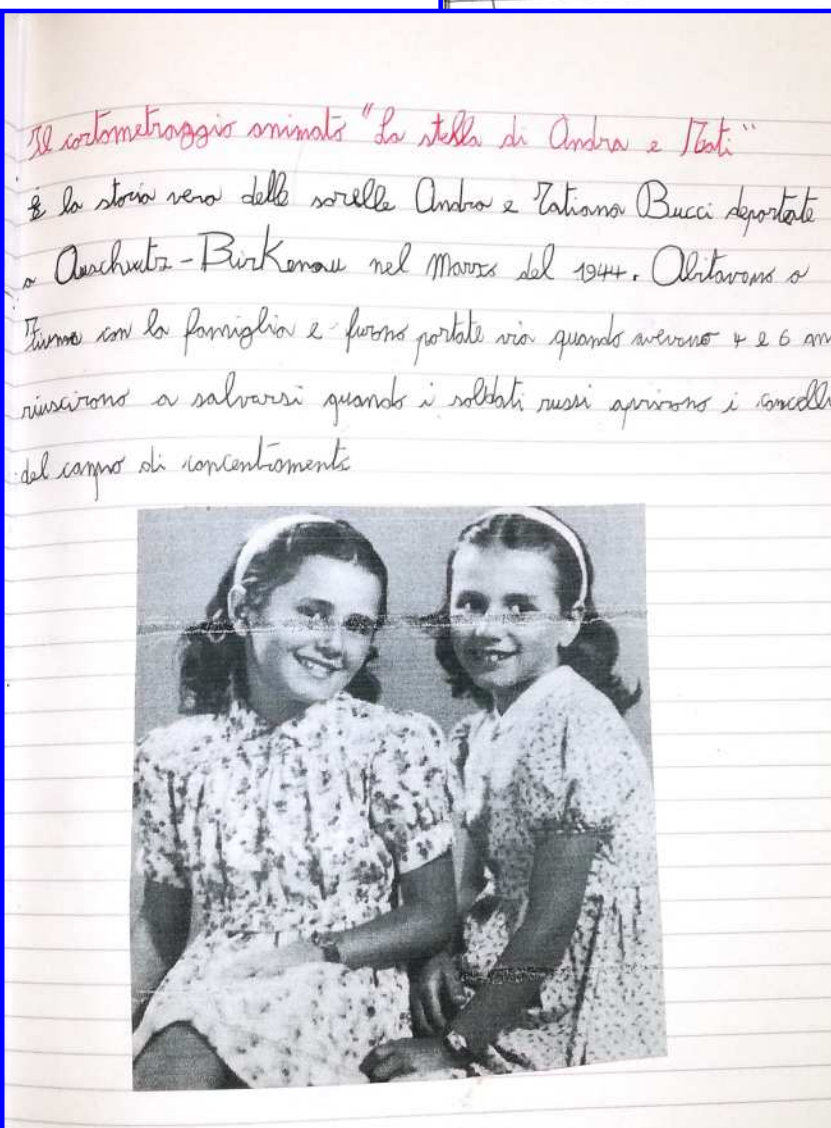 Il cortometraggio animato "La stella di Andra e Tati"
è la storia vera delle sorelle Andra e Tatiana Bucci deportate
a Auschwitz-BirKenau nel Marzo del 1944. Abitavano a
Fiume con la famiglia e furono portate via quando avevano 4 e 6 an
riuscirono a salvarsi quando i soldati russi aprirono i cancelli
del campo di concentramento